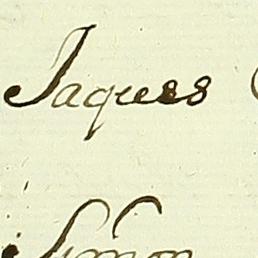 Jaques
Simon